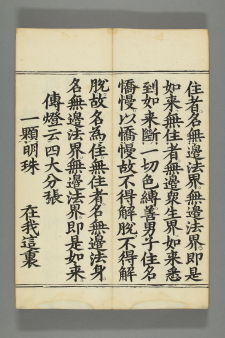 住者名無邊法界無邊法界即是
如来無住者無邊衆生界如来悉
到如来斷一切色縛善男子住名
憍慢以憍慢故不得解脫不得解
脫故名為住無住者名無邊法身
名無邊法界無邊法界即是如来
傳燈云四大分張
一顆明珠　在我這裏